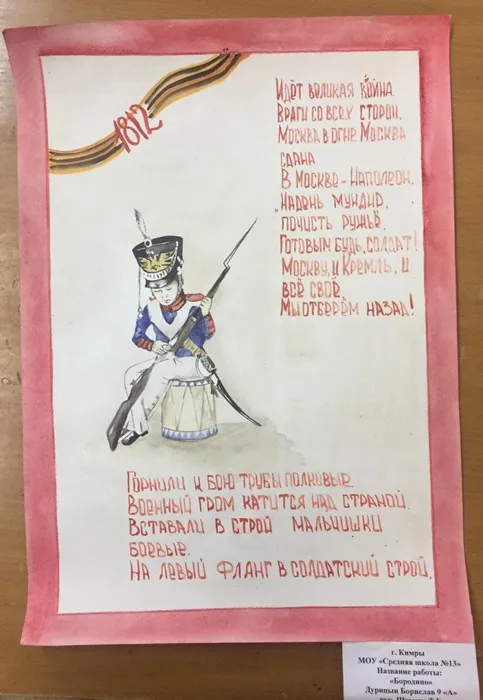 1812
Идёт великая война.
Враги со всех сторон.
Москва в огне Москва
сдана
В Москве - Наполеон.
„Надень мундир,
почисть ружьё.
Готовым будь, солдат!
Москву, и Кремль, и
всё своё
Мы отберём назад!
Горнили к бою трубы полковые.
Военный гром катится над страной.
Вставали в строй мальчишки
боевые.
На левый фланг в солдатский строй.
г. Кимры
МОУ «Средняя школа №13»
Название работы:
«Бородино»
Дурицын Борислав 9 «А»